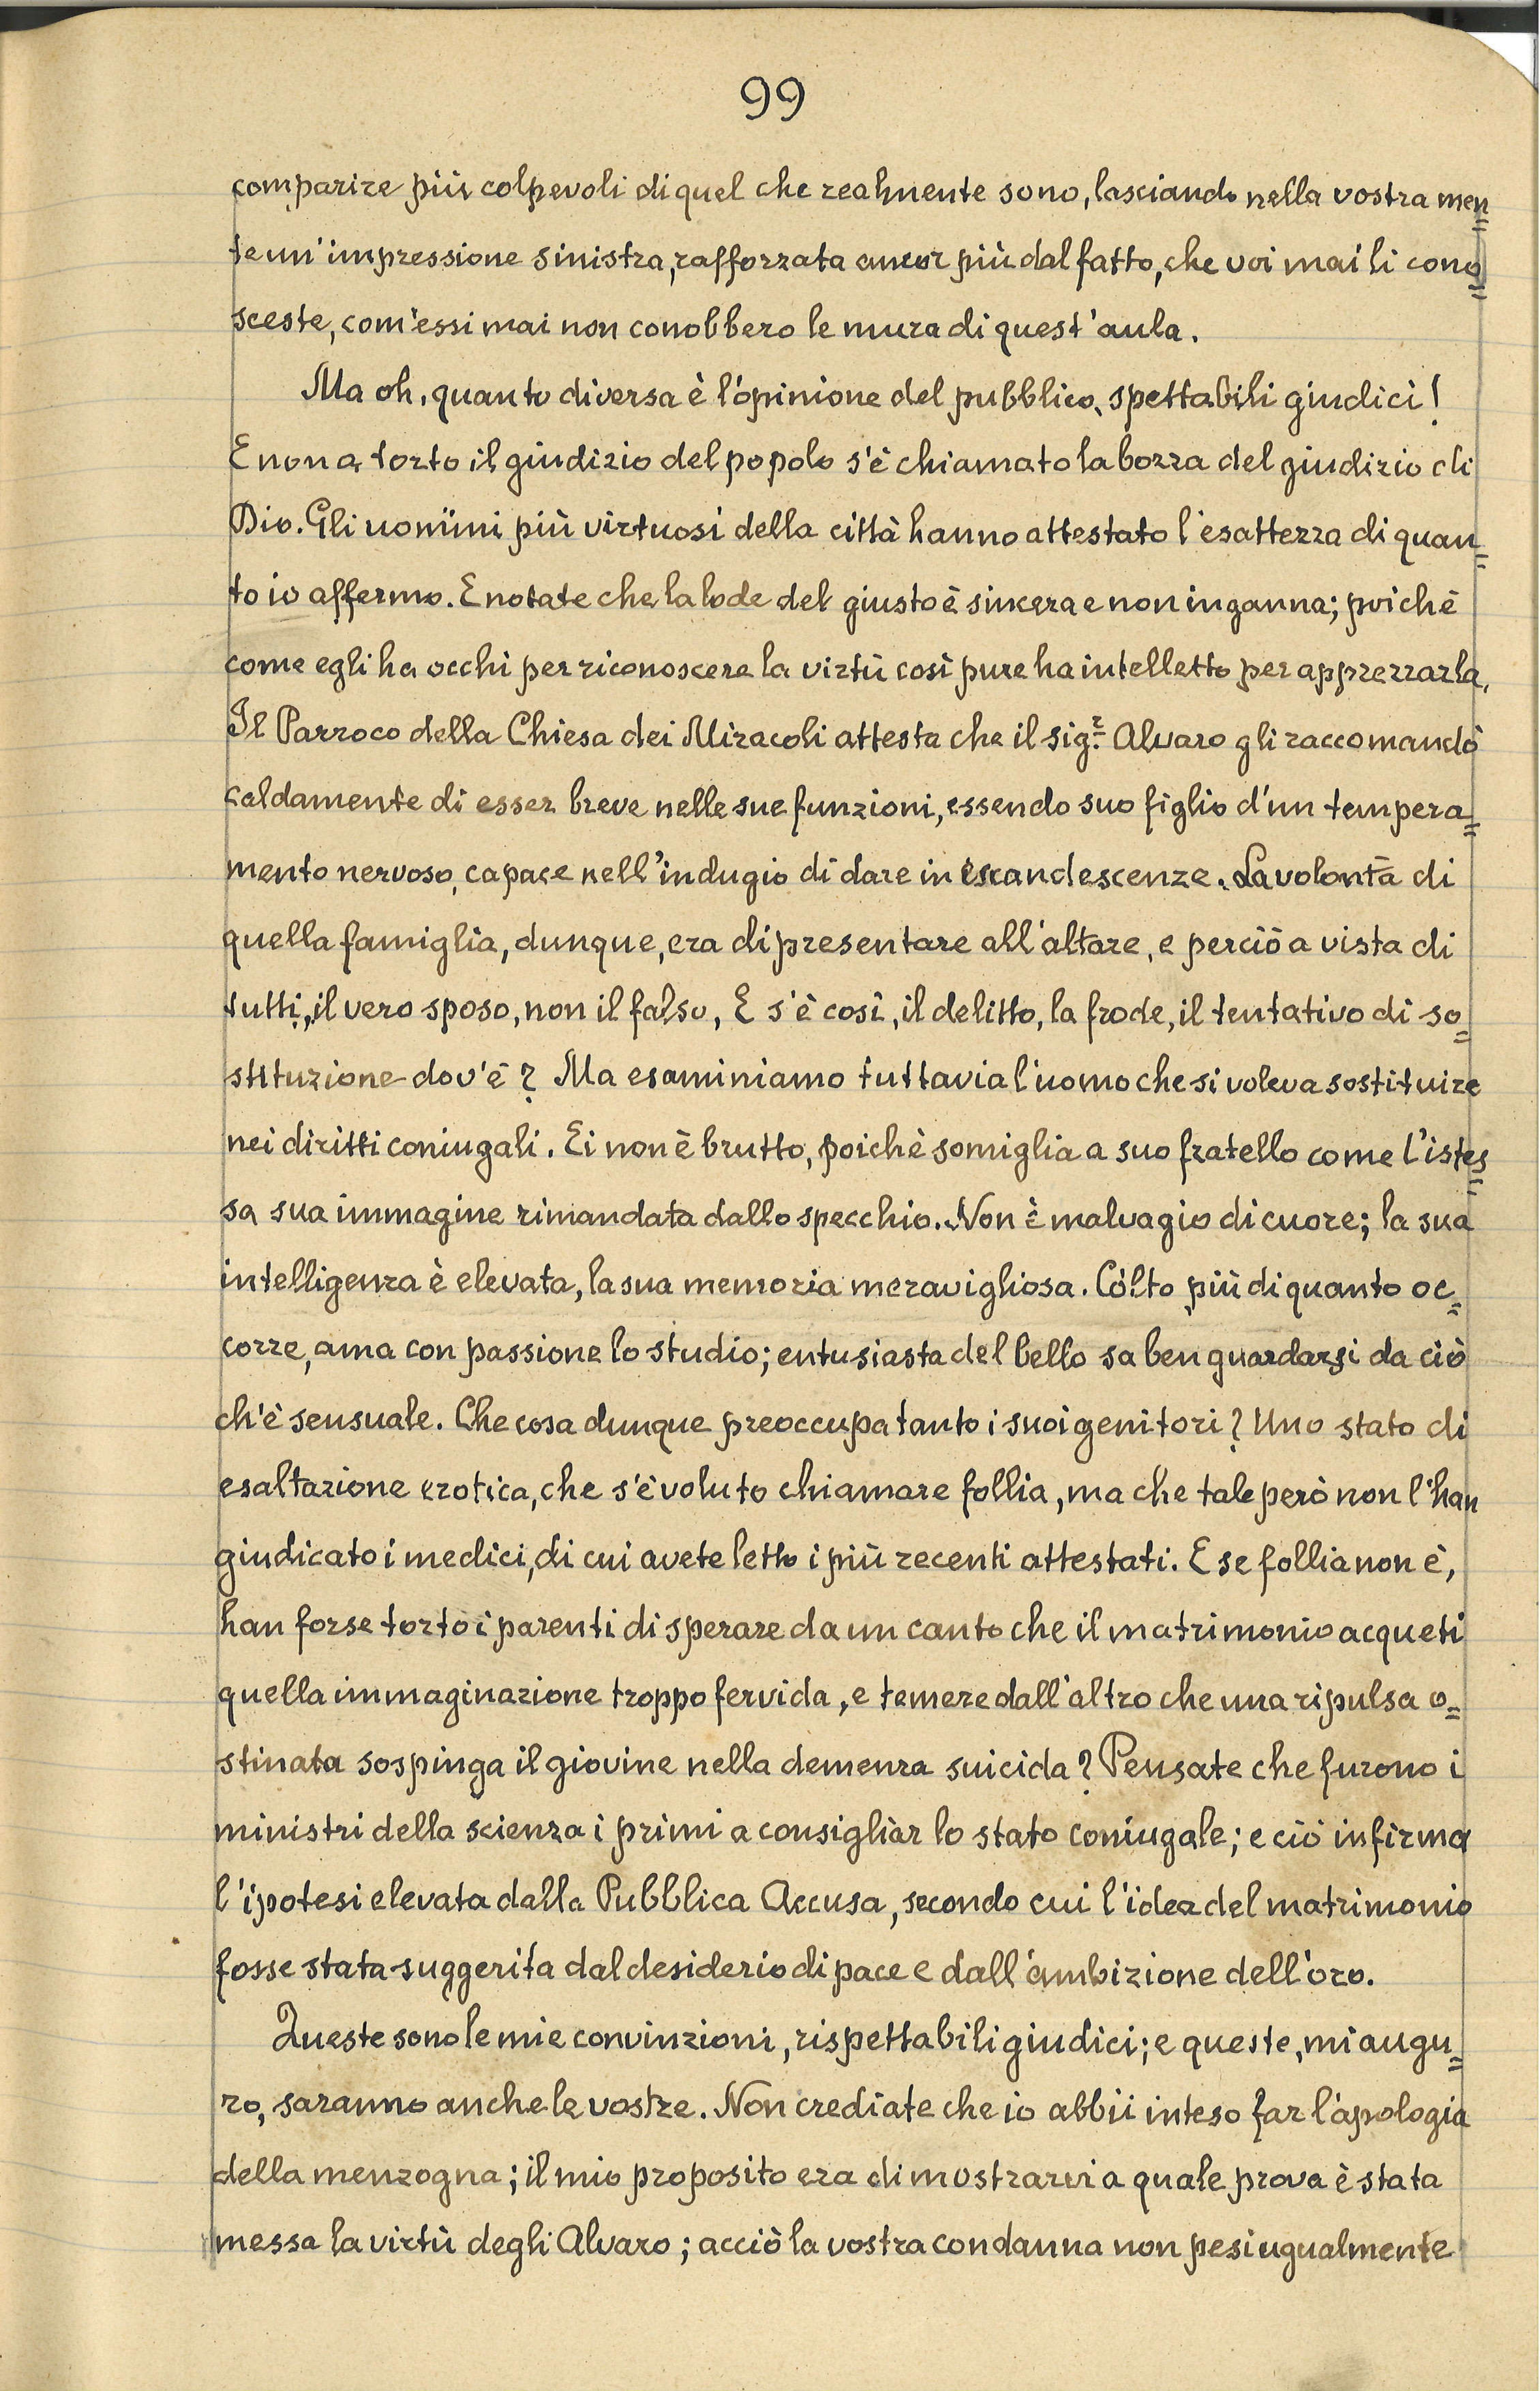 99
comparire più colpevoli di quel che realmente sono, lasciando nella vostra men=
te un'impressione sinistra, rafforzata ancor più dal fatto, che voi mai li cono=
sceste, com'essi mai non conobbero le mura di quest'aula.
Ma oh, quanto diversa è l'opinione del pubblico, spettabili giudici!
E non a torto il giudizio del popolo s'è chiamato la bozza del giudizio di
Dio. Gli uomini più virtuosi della città hanno attestato l'esattezza di quan=
to io affermo. E notate che la lode del giusto è sincera e non inganna; poichè
come egli ha occhi per riconoscere la virtù così pure ha intelletto per apprezzarla.
Il Parroco della Chiesa dei Miracoli attesta che il sig.r Alvaro gli raccomandò
caldamente di esser breve nelle sue funzioni, essendo suo figlio d'un tempera=
mento nervoso, capace nell'indugio di dare in escandescenze. La volontà di
quella famiglia, dunque, era di presentare all'altare, e perciò a vista di
tutti, il vero sposo, non il falso. E s'è così, il delitto, la frode, il tentativo di so=
stituzione dov'è? Ma esaminiamo tuttavia l'uomo che si voleva sostituire
nei diritti coniugali. Ei non è brutto, poichè somiglia a suo fratello come l'istes=
sa sua immagine rimandata dallo specchio. Non è malvagio di cuore; la sua
intelligenza è elevata, la sua memoria meravigliosa. Cólto più di quanto oc=
corre, ama con passione lo studio; entusiasta del bello sa ben guardarsi da ciò
ch'è sensuale. Che cosa dunque preoccupa tanto i suoi genitori? Uno stato di
esaltazione erotica, che s'è voluto chiamare follia, ma che tale però non l'han
giudicato i medici, di cui avete letto i più recenti attestati. E se follia non è,
han forse torto i parenti di sperare da un canto che il matrimonio acqueti
quella immaginazione troppo fervida, e temere dall'altro che una ripulsa o=
stinata sospinga il giovine nella demenza suicida? Pensate che furono i
ministri della scienza i primi a consigliar lo stato coniugale; e ciò infirma
l'ipotesi elevata dalla Pubblica Accusa, secondo cui l'idea del matrimonio
fosse stata suggerita dal desiderio di pace e dall'ambizione dell'oro.
Queste sono le mie convinzioni, rispettabili giudici; e queste, mi augu=
ro, saranno anche le vostre. Non crediate che io abbii inteso far l'apologia
della menzogna; il mio proposito era di mostrarvi a quale prova è stata
messa la virtù degli Alvaro; acciò la vostra condanna non pesi ugualmente